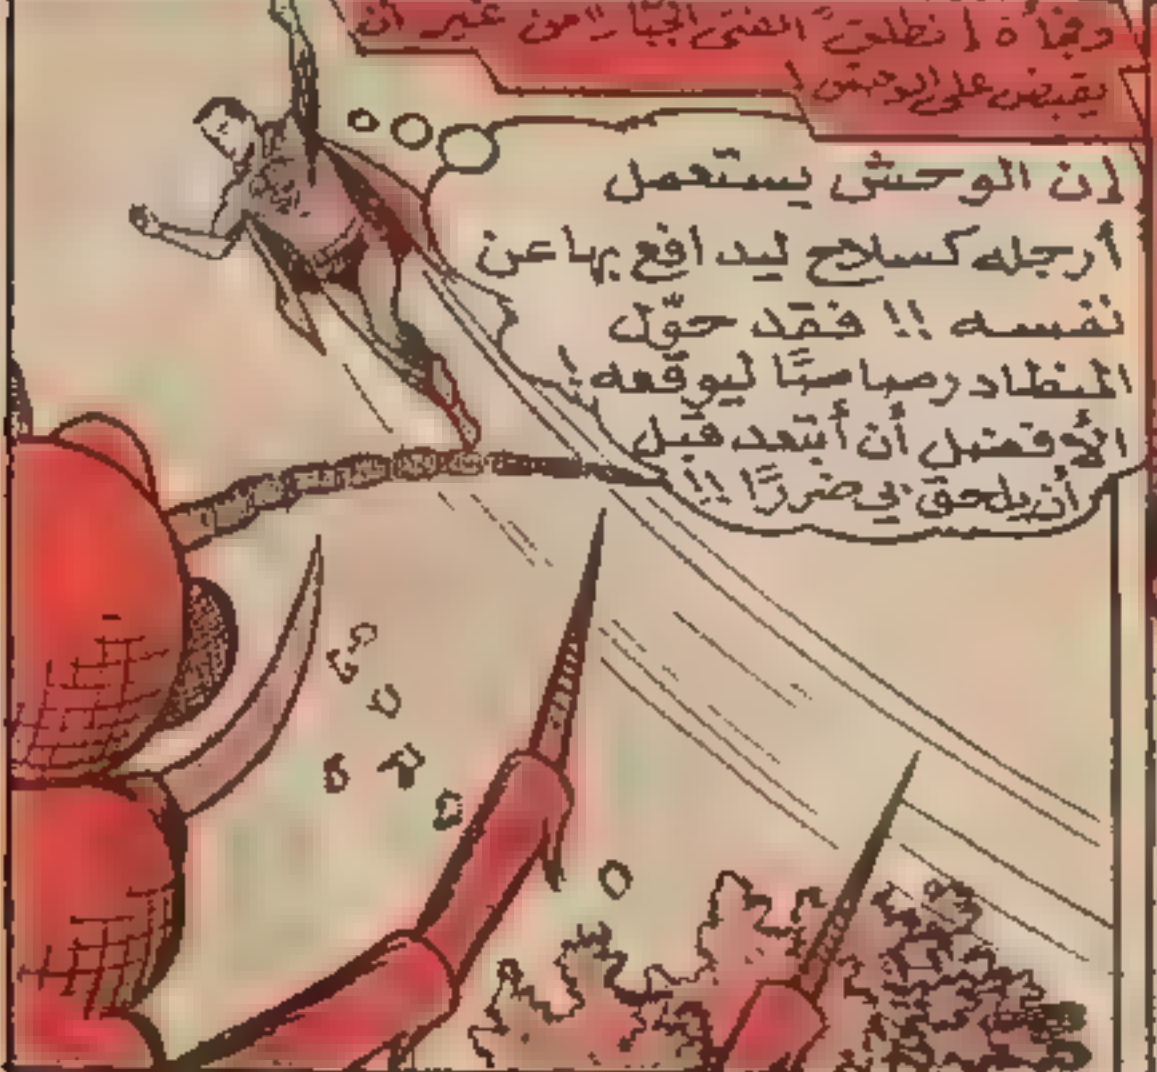 وفجأة انطلق الفتى الجبار من غير أن
يقبض على الوحش!
إن الوحش يستعمل
أرجله كسلاح ليدافع بها عن
نفسه !! فقد حوّل
المنطاد رصاصًا ليوقعه!
الأفضل أن أبتعد قبل
أن يلحق بي ضررًا !!